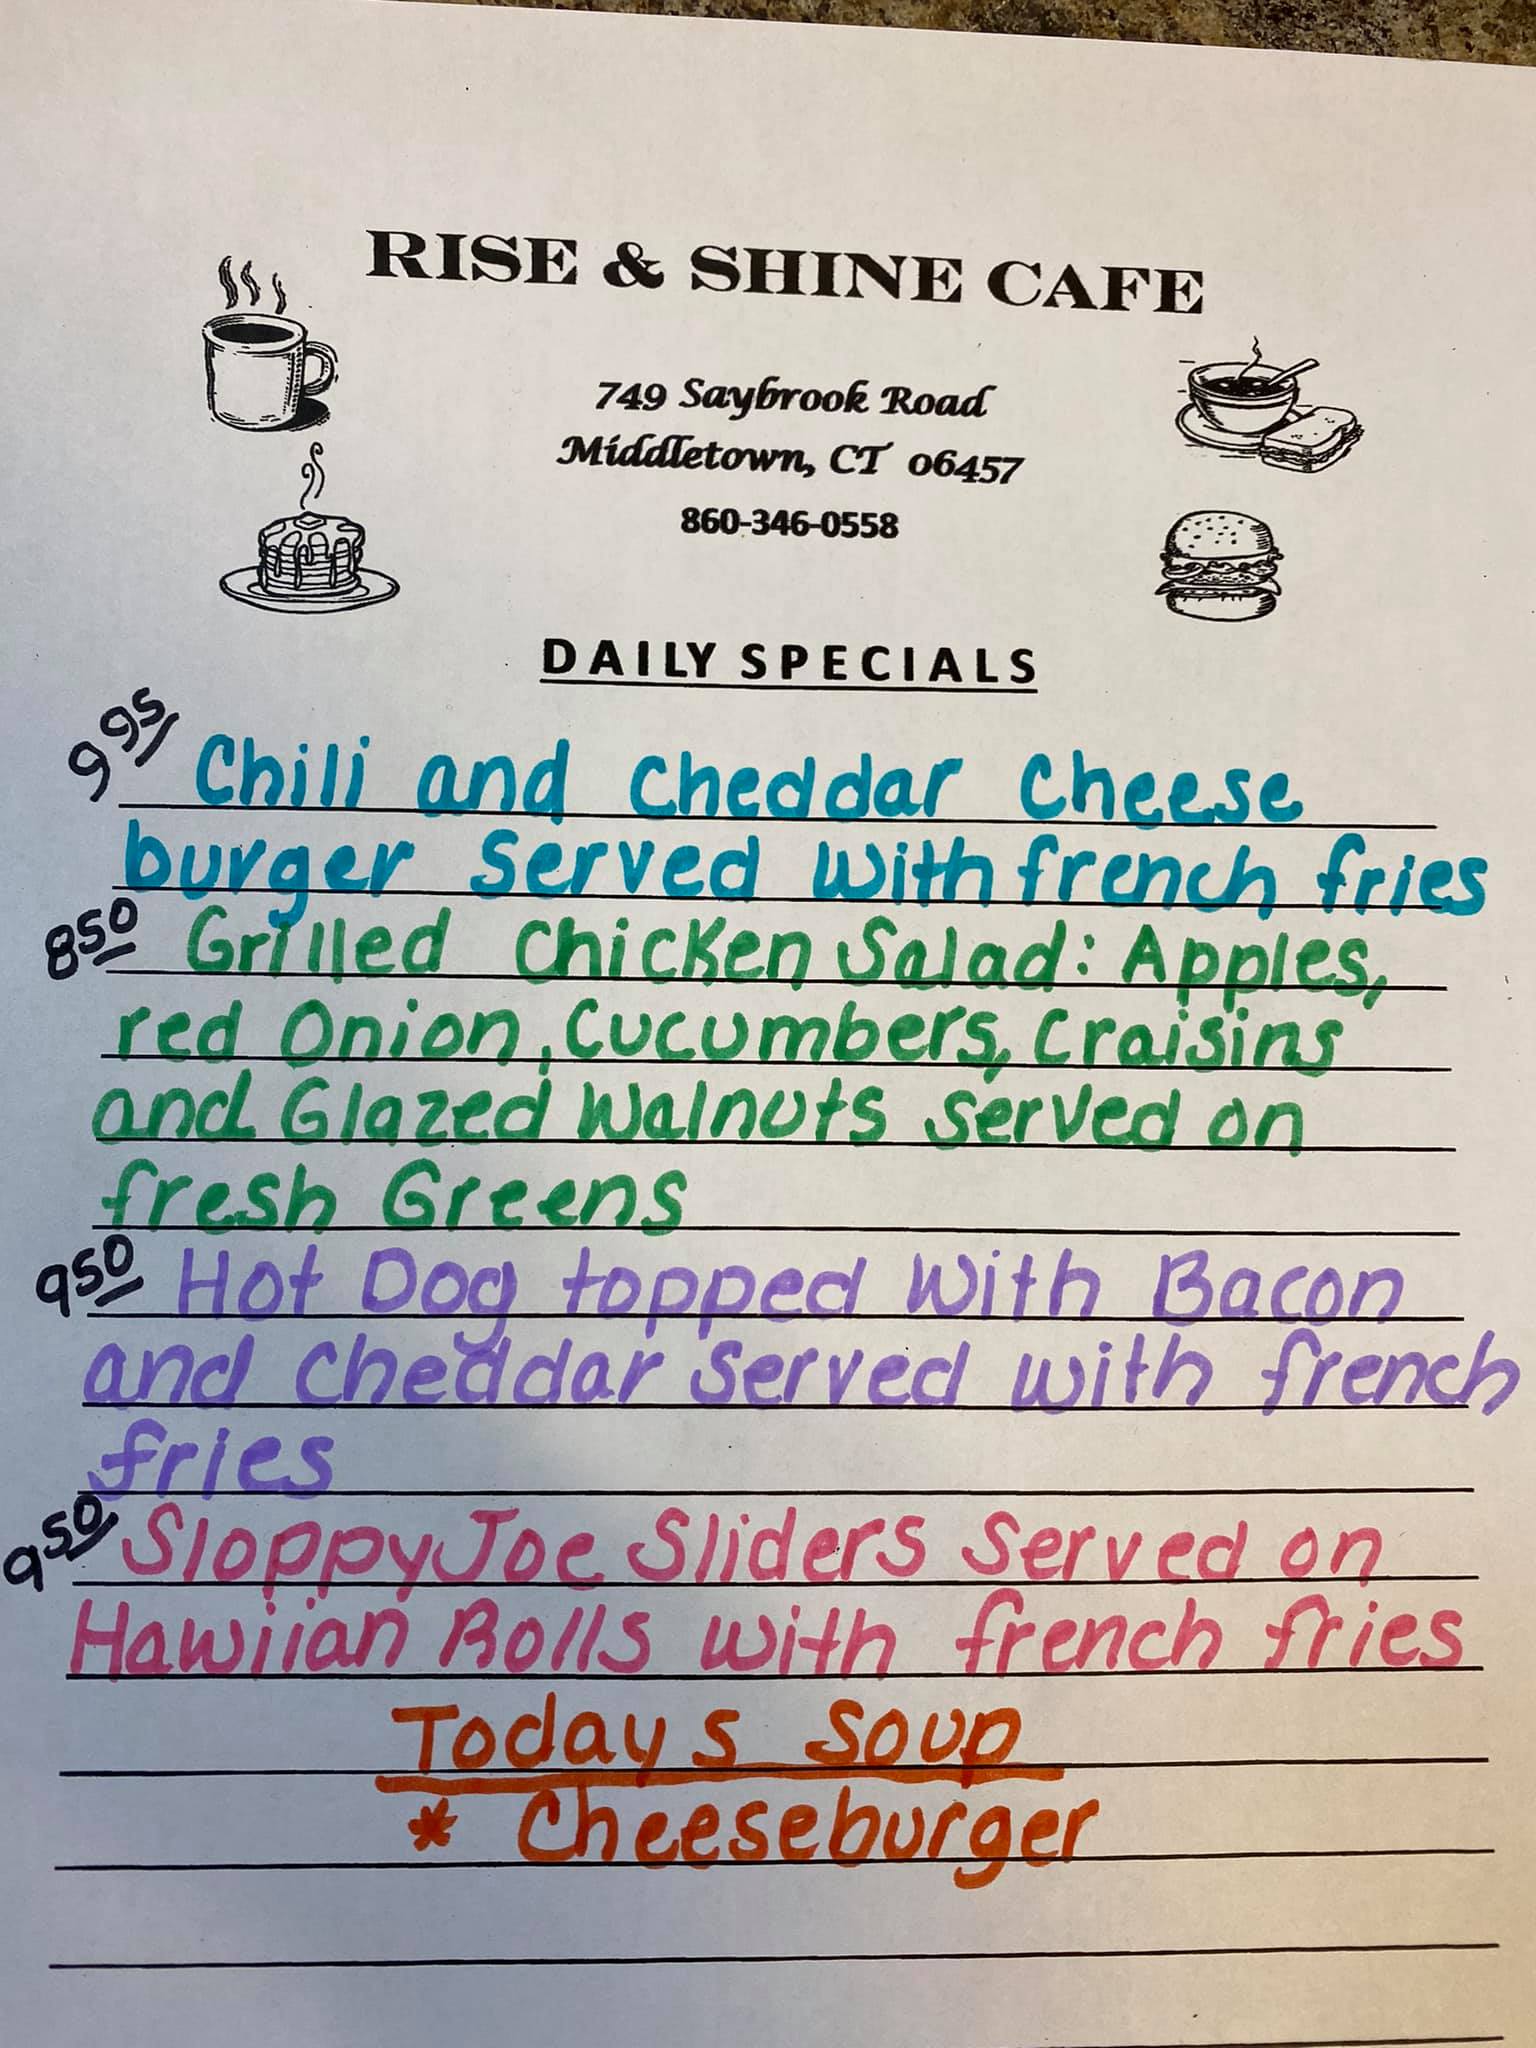 RISE & SHINE CAFE
749 Saybrook Road
Middletown, CT 06457
860-346-0558
DAILY SPECIALS
9 95 Chili and Cheddar Cheese
burger Served with french fries
8 50 Grilled Chicken Salad: Apples,
red Onion, Cucumbers, Craisins
and Glazed Walnuts served on
fresh Greens
9 50 Hot Dog topped with Bacon
and Cheddar Served with french
fries
9 50 Sloppy Joe Sliders Served on
Hawiian Rolls with french fries
Todays Soup
* Cheeseburger